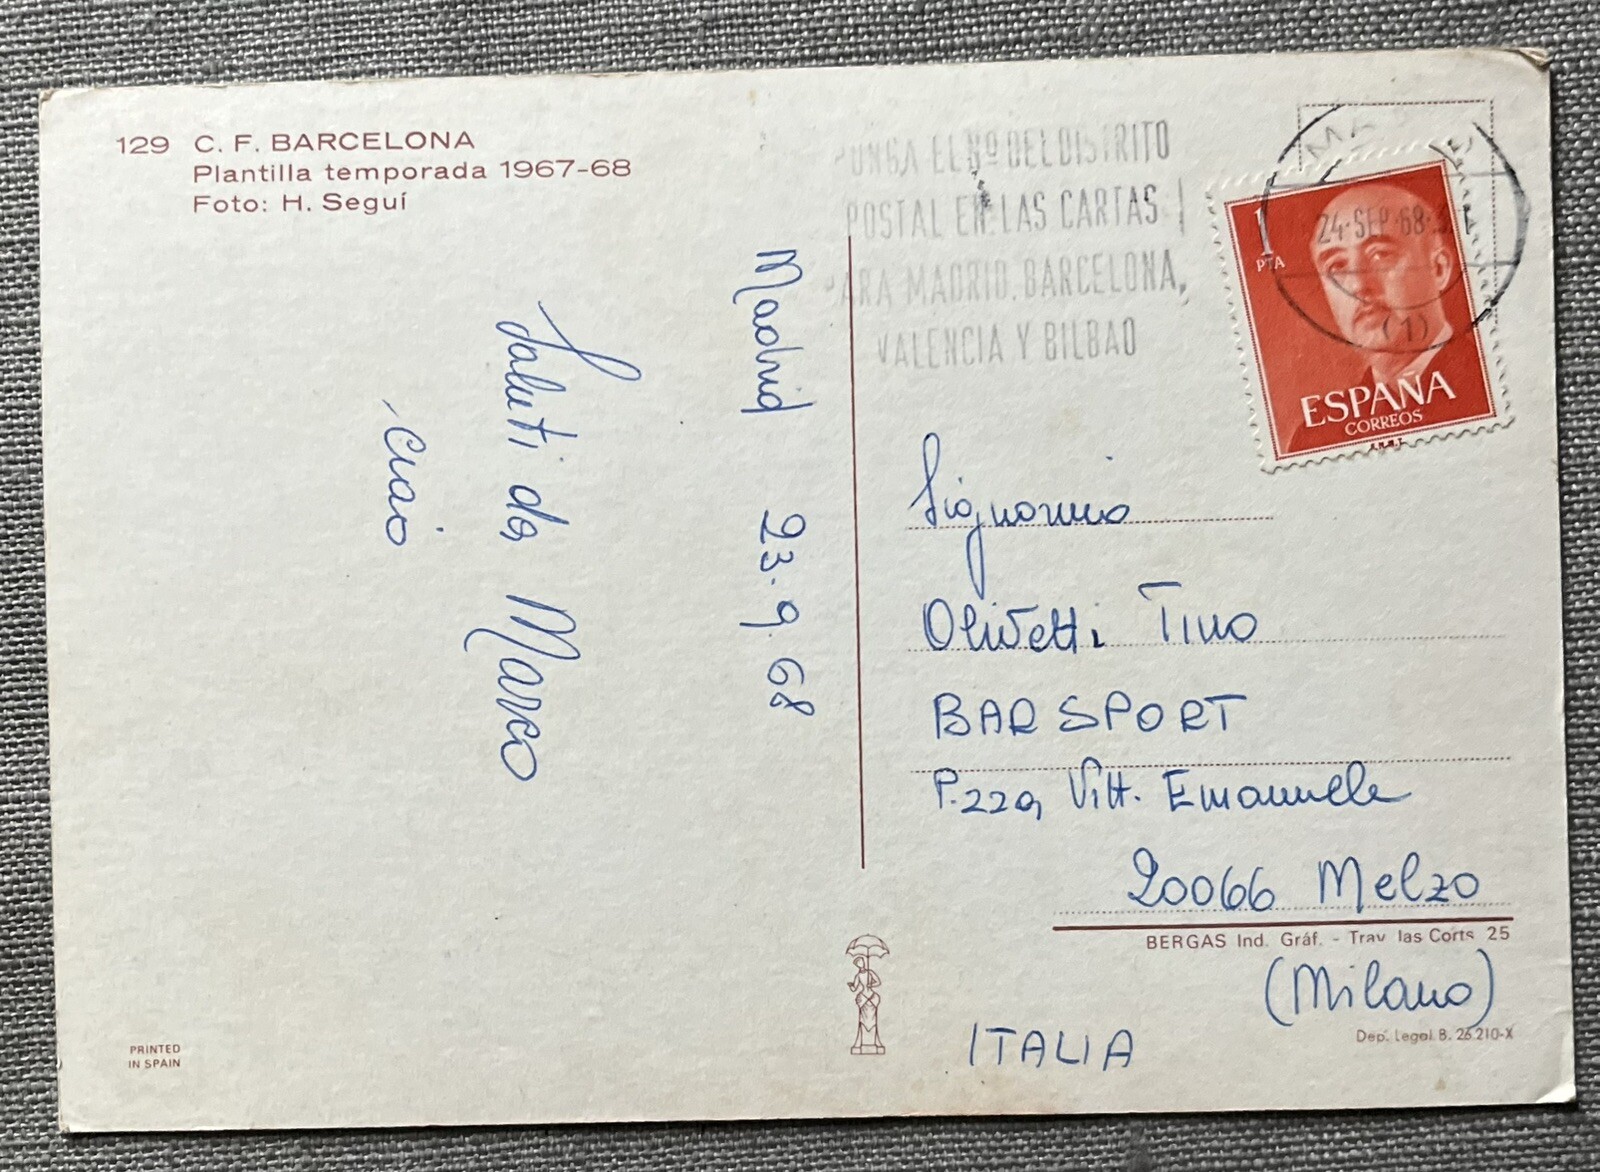 129 C. F. BARCELONA
Plantilla temporada 1967-68
Foto: H. Seguí
Madrid 23.9.68
Saluti da Marco
ciao
PUNGA EL Nº DEL DISTRITO
POSTAL EN LAS CARTAS
PARA MADRID, BARCELONA,
VALENCIA Y BILBAO
24·SEP·68
(1)
1
PTA
ESPAÑA
CORREOS
Olivetti Tino
BAR SPORT
P.zza Vitt. Emanuele
20066 Melzo
BERGAS Ind. Gráf. - Trav las Corts 25
(Milano)
Dep. Legal B. 26.210-X
ITALIA
PRINTED
IN SPAIN